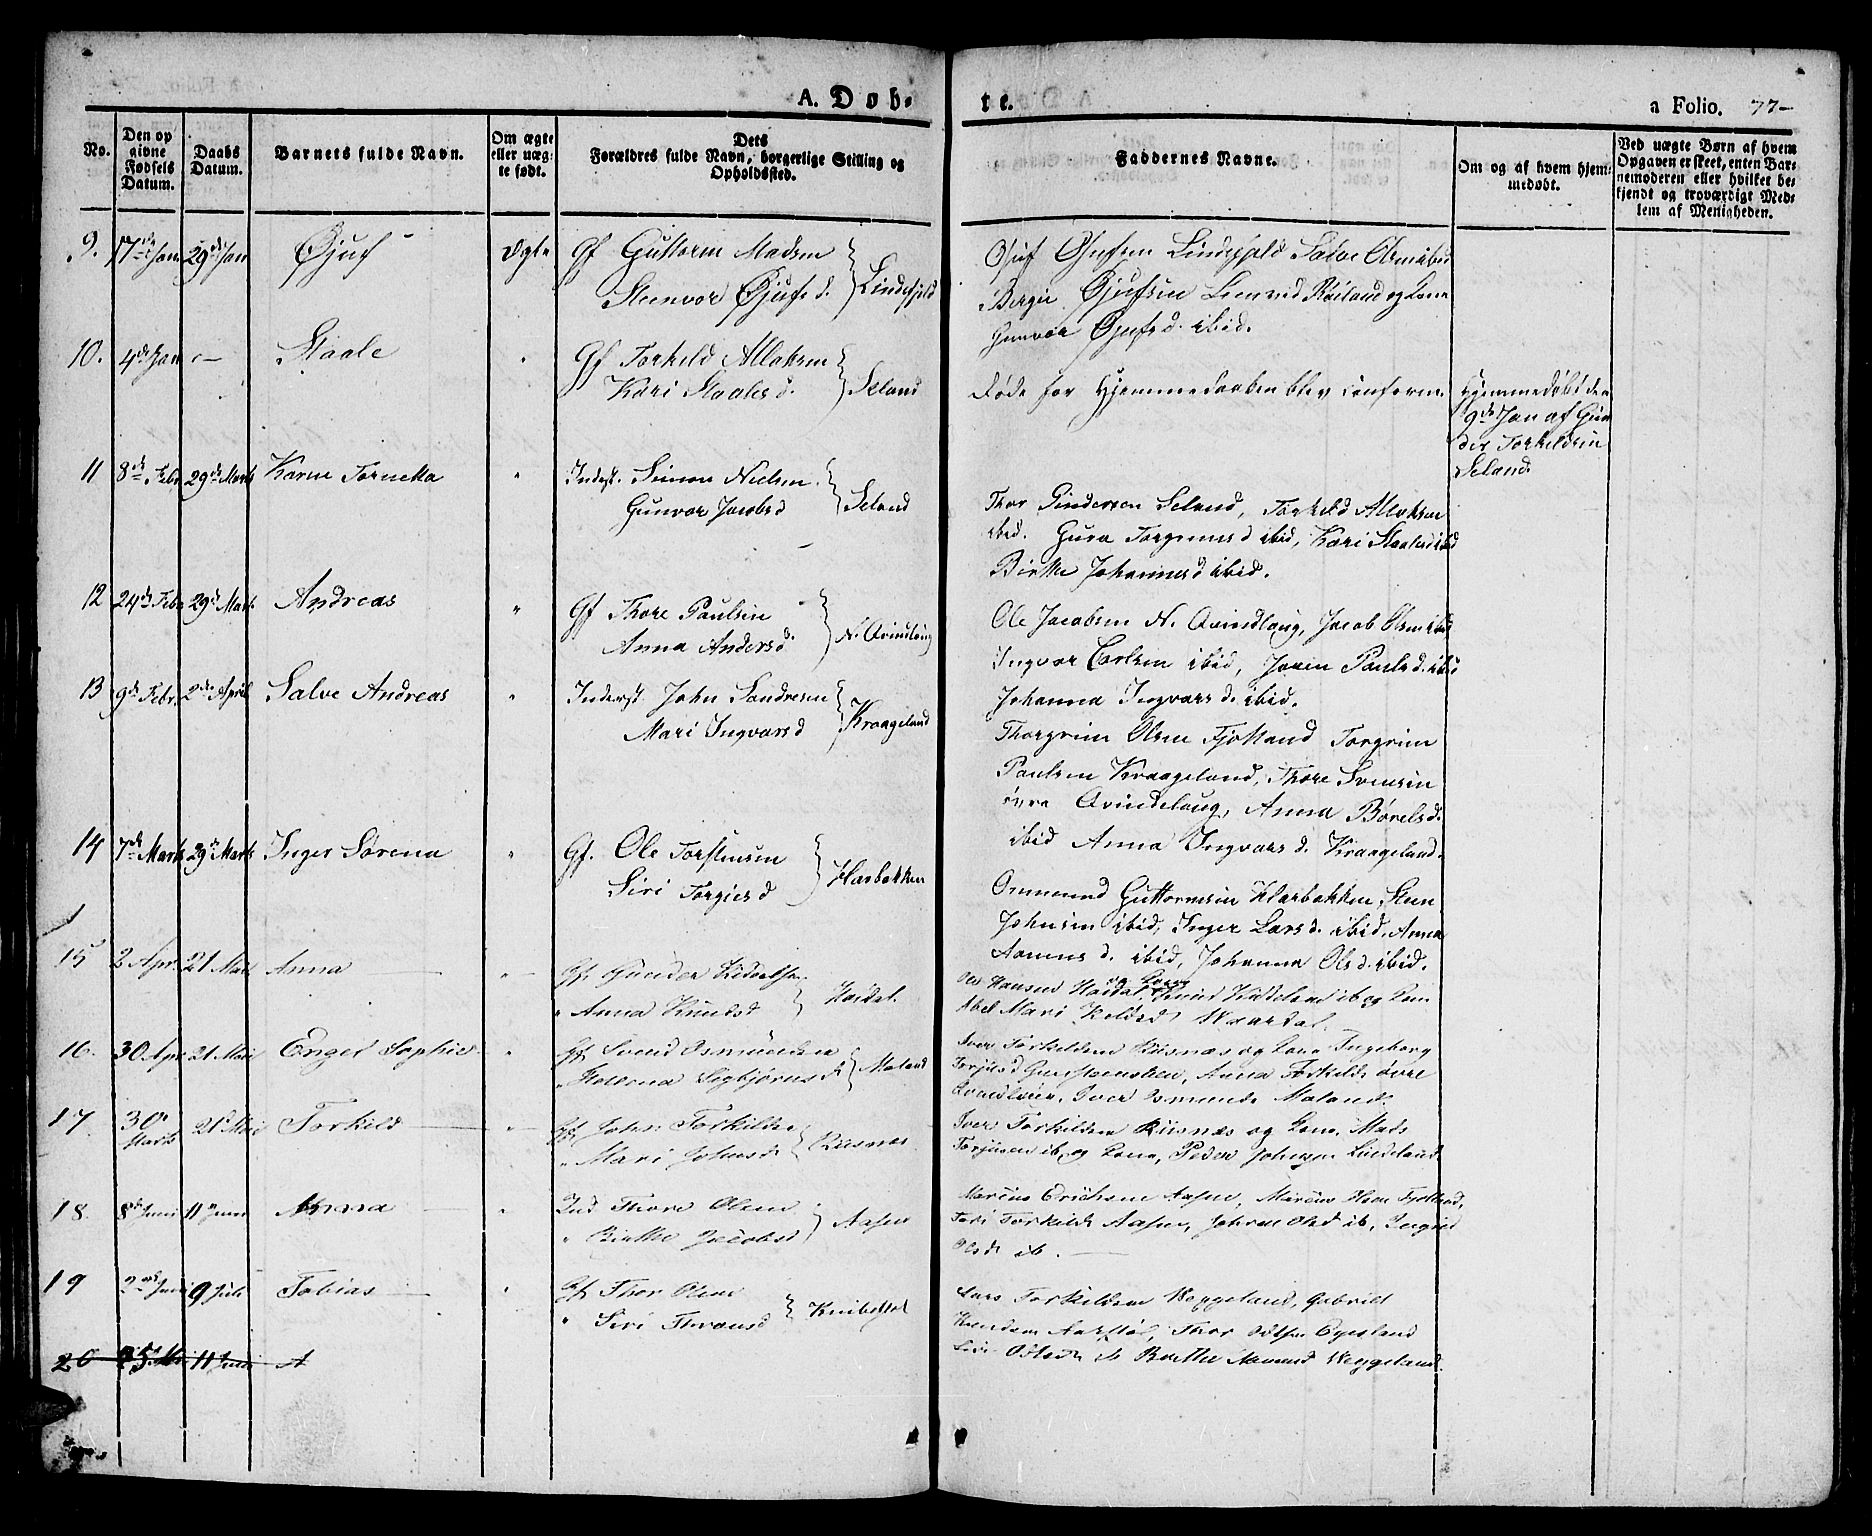 A. Døb-
te.
a Folio. 77-
No.
Den op
givne
Fødsels
Datum.
Daabs
Datum.
Barnets fulde Navn.
Om ægte
eller uæg-
te født.
Dets
Forældres fulde Navn, borgerlige Stilling og
Opholdssted.
Faddernes Navne.
Om og af hvem hjem-
medøbt.
Ved uægte Børn af hvem
Opgaven er skeet, enten Bar-
nemoderen eller hvilket be-
kjendt og troværdigt Med-
lem af Menigheden.
9. 17de Jan 29de Jan Øjuf ægte Gf Guttorm Madsen
Steenvor Øjufsd. Lindefjeld
Lindefjeld Salve Olsen ibid
Øjufsen
Gunvor Øjufsd. ibid.
10. 4de Jan — Staale " Gf Torkild Allaksen
Kari Staalesd. Seland
Døde før Hjemmedaaben blev conferm.
Hjemmedøbt den
9de Jan af Gun
der Torkildsen
Seland
11 8de Febr 29de Marts Karen Tornetta " Inderst. Simon Nielsen
Gunvor Jacobsd Seland
Thor Gundersen Seland, Torkild Allaksen
ibid. Guro Torgrimsd ibid, Kari Staalesd ibid
Birthe Johannesd ibid.
12 24de Febr 29de Mart. Andreas " Gf Thore Paulsen
Anna Andersd. N. Qvindlaug
Ole Jacobsen N. Qvindlaug, Jacob Olsen ibid
Ingvor Carlsen ibid, Joren Paulsd. ibid
Johanna Ingvarsd. ibid.
13 9de Febr. 2den April Salve Andreas " Inderst. John Sandresen
Mari Ingvarsd Kraageland
Thorgrim Olsen Fjotland Torgrim
Paulsen Kraageland, Thore Svensen
øvre Qvindelaug, Anna Børelsd.
ibid Anna Ingvarsd. Kraageland.
14 7de Marts 29de Marts Inger Sørena " Gf. Ole Torstensen
Siri Torgiersd Klarbakken
Ommund Guttormsen Klarbakken, Steen
Johnsen ibid, Inger Larsd. ibid, Anna
Aamunsd. ibid, Johanna Olsd. ibid.
15 2 Apr. 21 Mai Anna — " Gf. Gunder
" Anna Knudsd Haidal.
Ole Hansen Haidal og Kone, Knud ib og Kone
Abel Mari Keldsd
16. 30 Apr. 21 Mai Enget Sophie " Gf. Svend Osmundsen
" Sigbjørnsd Moland
Iver Torkildsen Risnæs og Kone Ingeborg
Anna Torkilds øvre
Iver Osmunds Moland.
17. 30 Marts 21 Mai Torkild — " Gf. John Torkildsen
" Mari Johnsd Risnæs
Iver Torkildsen Risnæs og Kone, Mads
Torjusen ib og Kone, Peder Johnsen Lindeland
18. 8de Juni 11 Juni Anna — " Ind Thore Olsen
" Birthe Jacobsd Aasen
Marcus Erichsen Aasen, Marcus Olsen Fjotland,
Torkilds Aasen, Johan Olsd ib, Ingrid
Olsd ib. —
19 2den Juni 9 Juli Tobias — " Gf Thor Olsen
" Siri Knibestøl
Lars Torkildsen Veggeland, Gabriel
Knudsen Aarstøl, Thor Egeland
Siri ib Berthe Aamund Veggeland.
20 11 Juni A